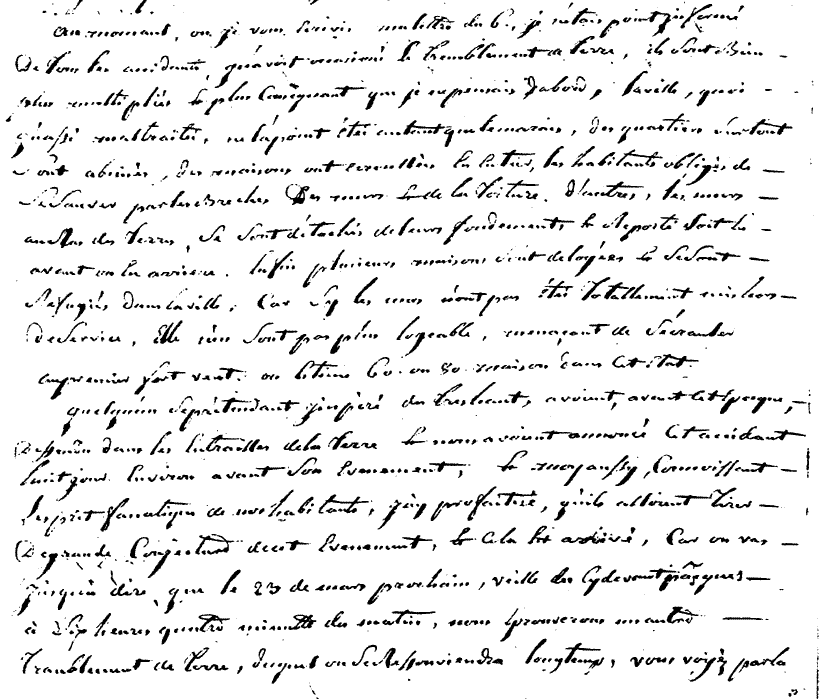 au moment, ou je vous Ecrivis ma lettre du 6., je n'étais point informé
De tous les accidents, qu'avoit occasioné le tremblement de terre, ils sont Bien
plus multipliés & plus Conséquent que je ne pensais D'abord, la ville, quoi
qu'assé maltraitée, ne la point été autant que le marais, des quartiers surtout
sont abimés, des maisons ont ecroullées En entier, les habitants obligés de
se sauver par les Breches Des murs & de la toiture. D'autres, les murs
audela des terres, se sont détachés de leurs fondements & Reporté soit En
avant ou En arriere. Enfin plusieurs maisons sont delogées & se sont
Refugiés dans la ville, Car sy les unes n'ont pas été totallement mis hors
De service, Elle n'en sont pas plus logeable, menaçant de s'écrouler
au premier fort vent. on Estime 60. ou 80 maison dans Cet état.
quelqu'un se prétendant inspiré du tres haut, avoient, avant Cet Epoque,
Dans les Entrailles de la terre & nous avoient annoncé Cet accident
huit jour Environ avant son Evenement, & moy aussy, Connoissant
l'esprit fanatique de nos habitants, j'ay profetisé, qu'ils alloient tirer
De grande Conjectures de cet Evenement, & Cela Est arrivé, Car on va
jusqu'a dire, que le 23 de mars prochain, veille du Cy devant pâques
à Six heures quatre minutte du matin, nous Eprouverons un autre
tremblement de terre, duquel on se Ressouviendra longtemp, vous voyez par la